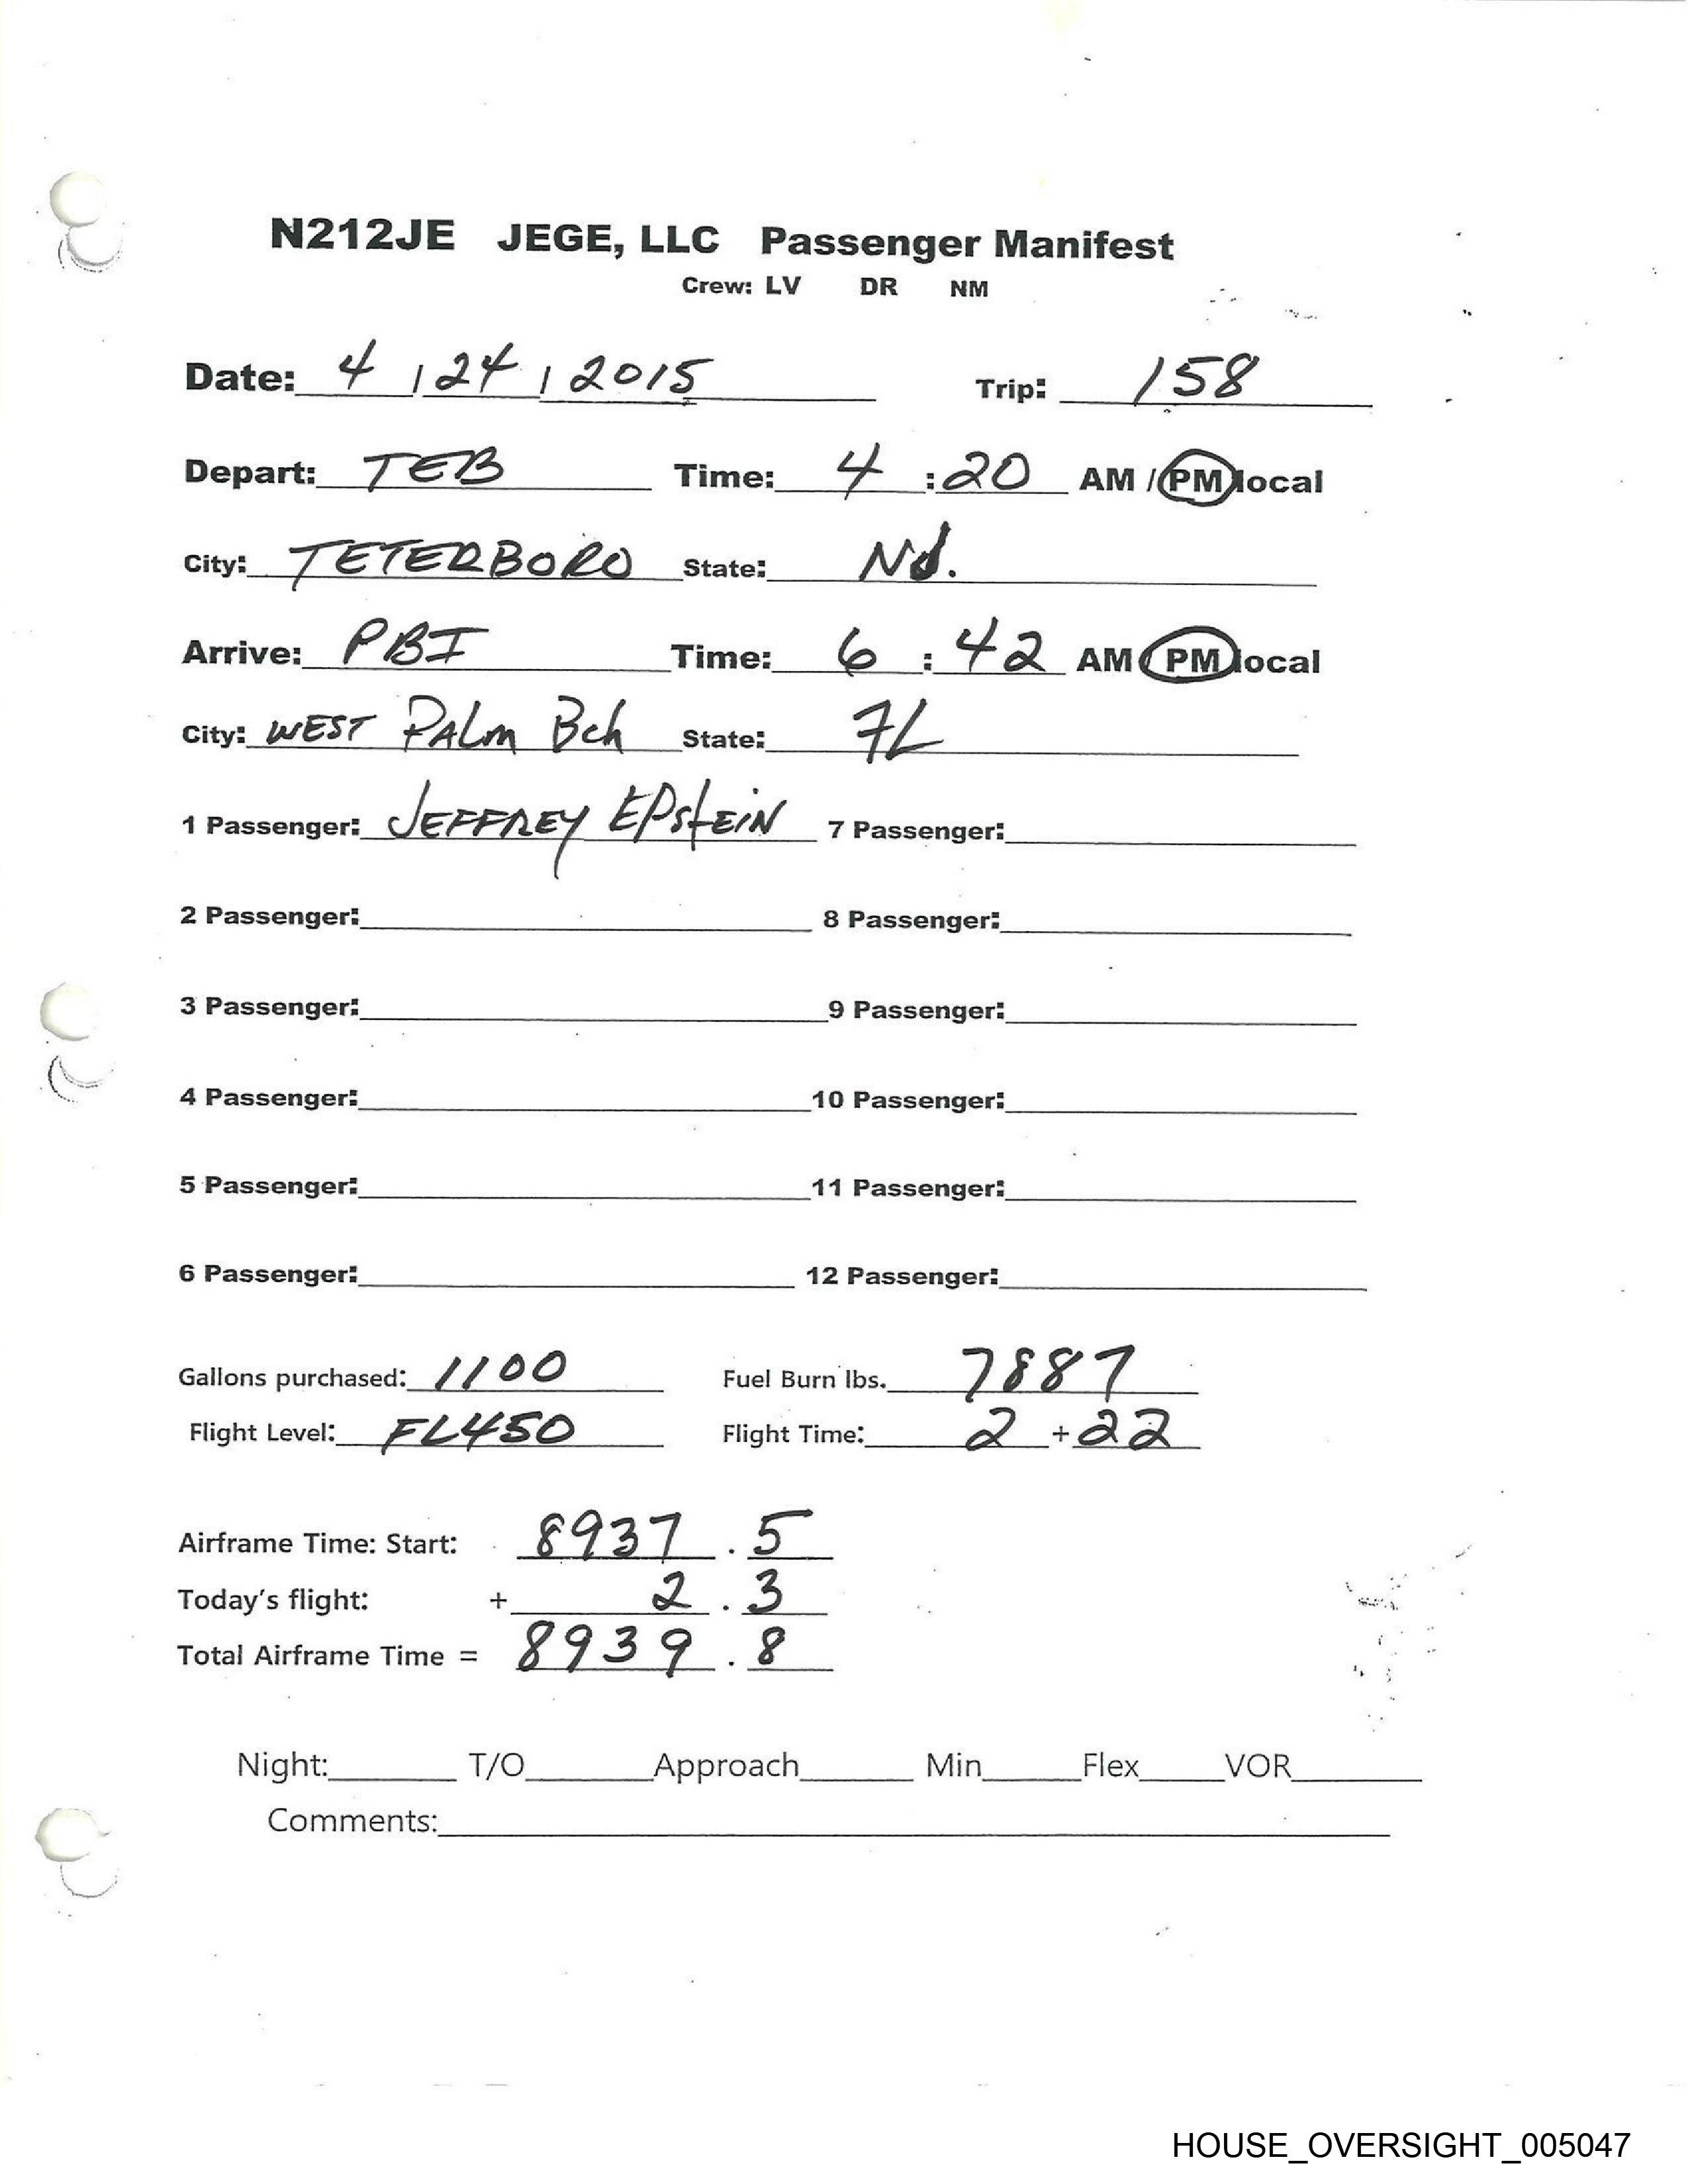 N212JE JEGE, LLC Passenger Manifest
Crew: LV DR NM
Date: 4 / 24 / 2015 Trip: 158
Depart: TEB Time: 4 : 20 AM / PM local
City: TETERBORO State: NJ.
Arrive: PBI Time: 6 : 42 AM / PM local
City: WEST PALm Bch State: FL
1 Passenger: JEFFREY EPstEiN 7 Passenger:
2 Passenger: 8 Passenger:
3 Passenger: 9 Passenger:
4 Passenger: 10 Passenger:
5 Passenger: 11 Passenger:
6 Passenger: 12 Passenger:
Gallons purchased: 1100 Fuel Burn lbs. 7887
Flight Level: FL450 Flight Time: 2 + 22
Airframe Time: Start: 8937 . 5
Today's flight: + 2 . 3
Total Airframe Time = 8939 . 8
Night: T/O Approach Min Flex VOR
Comments:
HOUSE_OVERSIGHT_005047